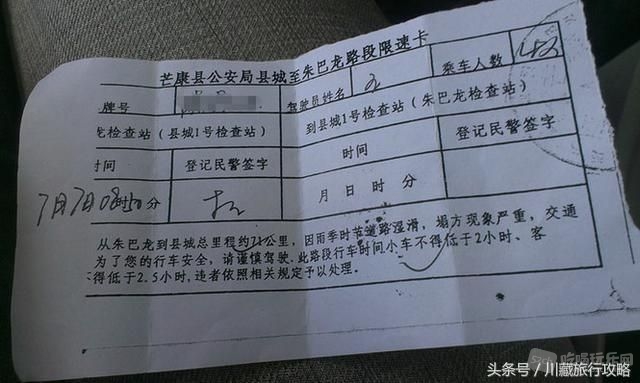 芒康县公安局县城至朱巴龙路段限速卡
牌号 驾驶员姓名 乘车人数
龙检查站（县城1号检查站） 到县城1号检查站（朱巴龙检查站）
时间 登记民警签字 时间 登记民警签字
7月7日08时50分 月 日 时 分
从朱巴龙到县城总里程约71公里，因雨季时节道路湿滑，塌方现象严重，交通
为了您的行车安全，请谨慎驾驶.此路段行车时间小车不得低于2小时、客
得低于2.5小时,违者依照相关规定予以处理.
吃喝玩乐网
头条号 / 川藏旅行攻略